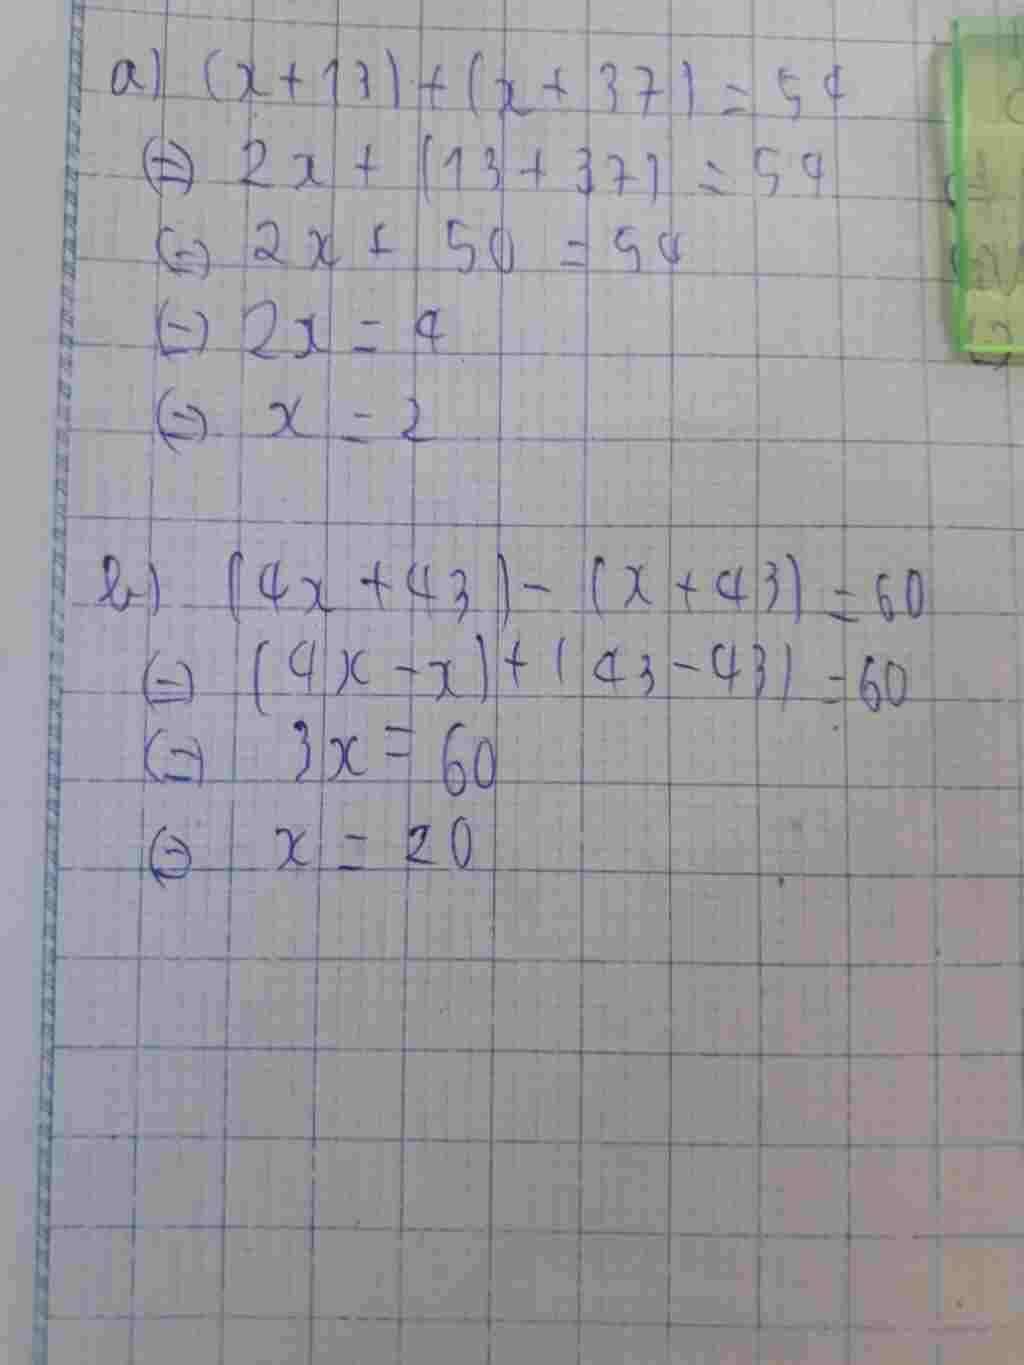 a) (x + 13) + (x + 37) = 54
⇔ 2x + (13 + 37) = 54
⇔ 2x + 50 = 54
⇔ 2x = 4
⇔ x = 2
b) (4x + 43) - (x + 43) = 60
⇔ (4x - x) + (43 - 43) = 60
⇔ 3x = 60
⇔ x = 20